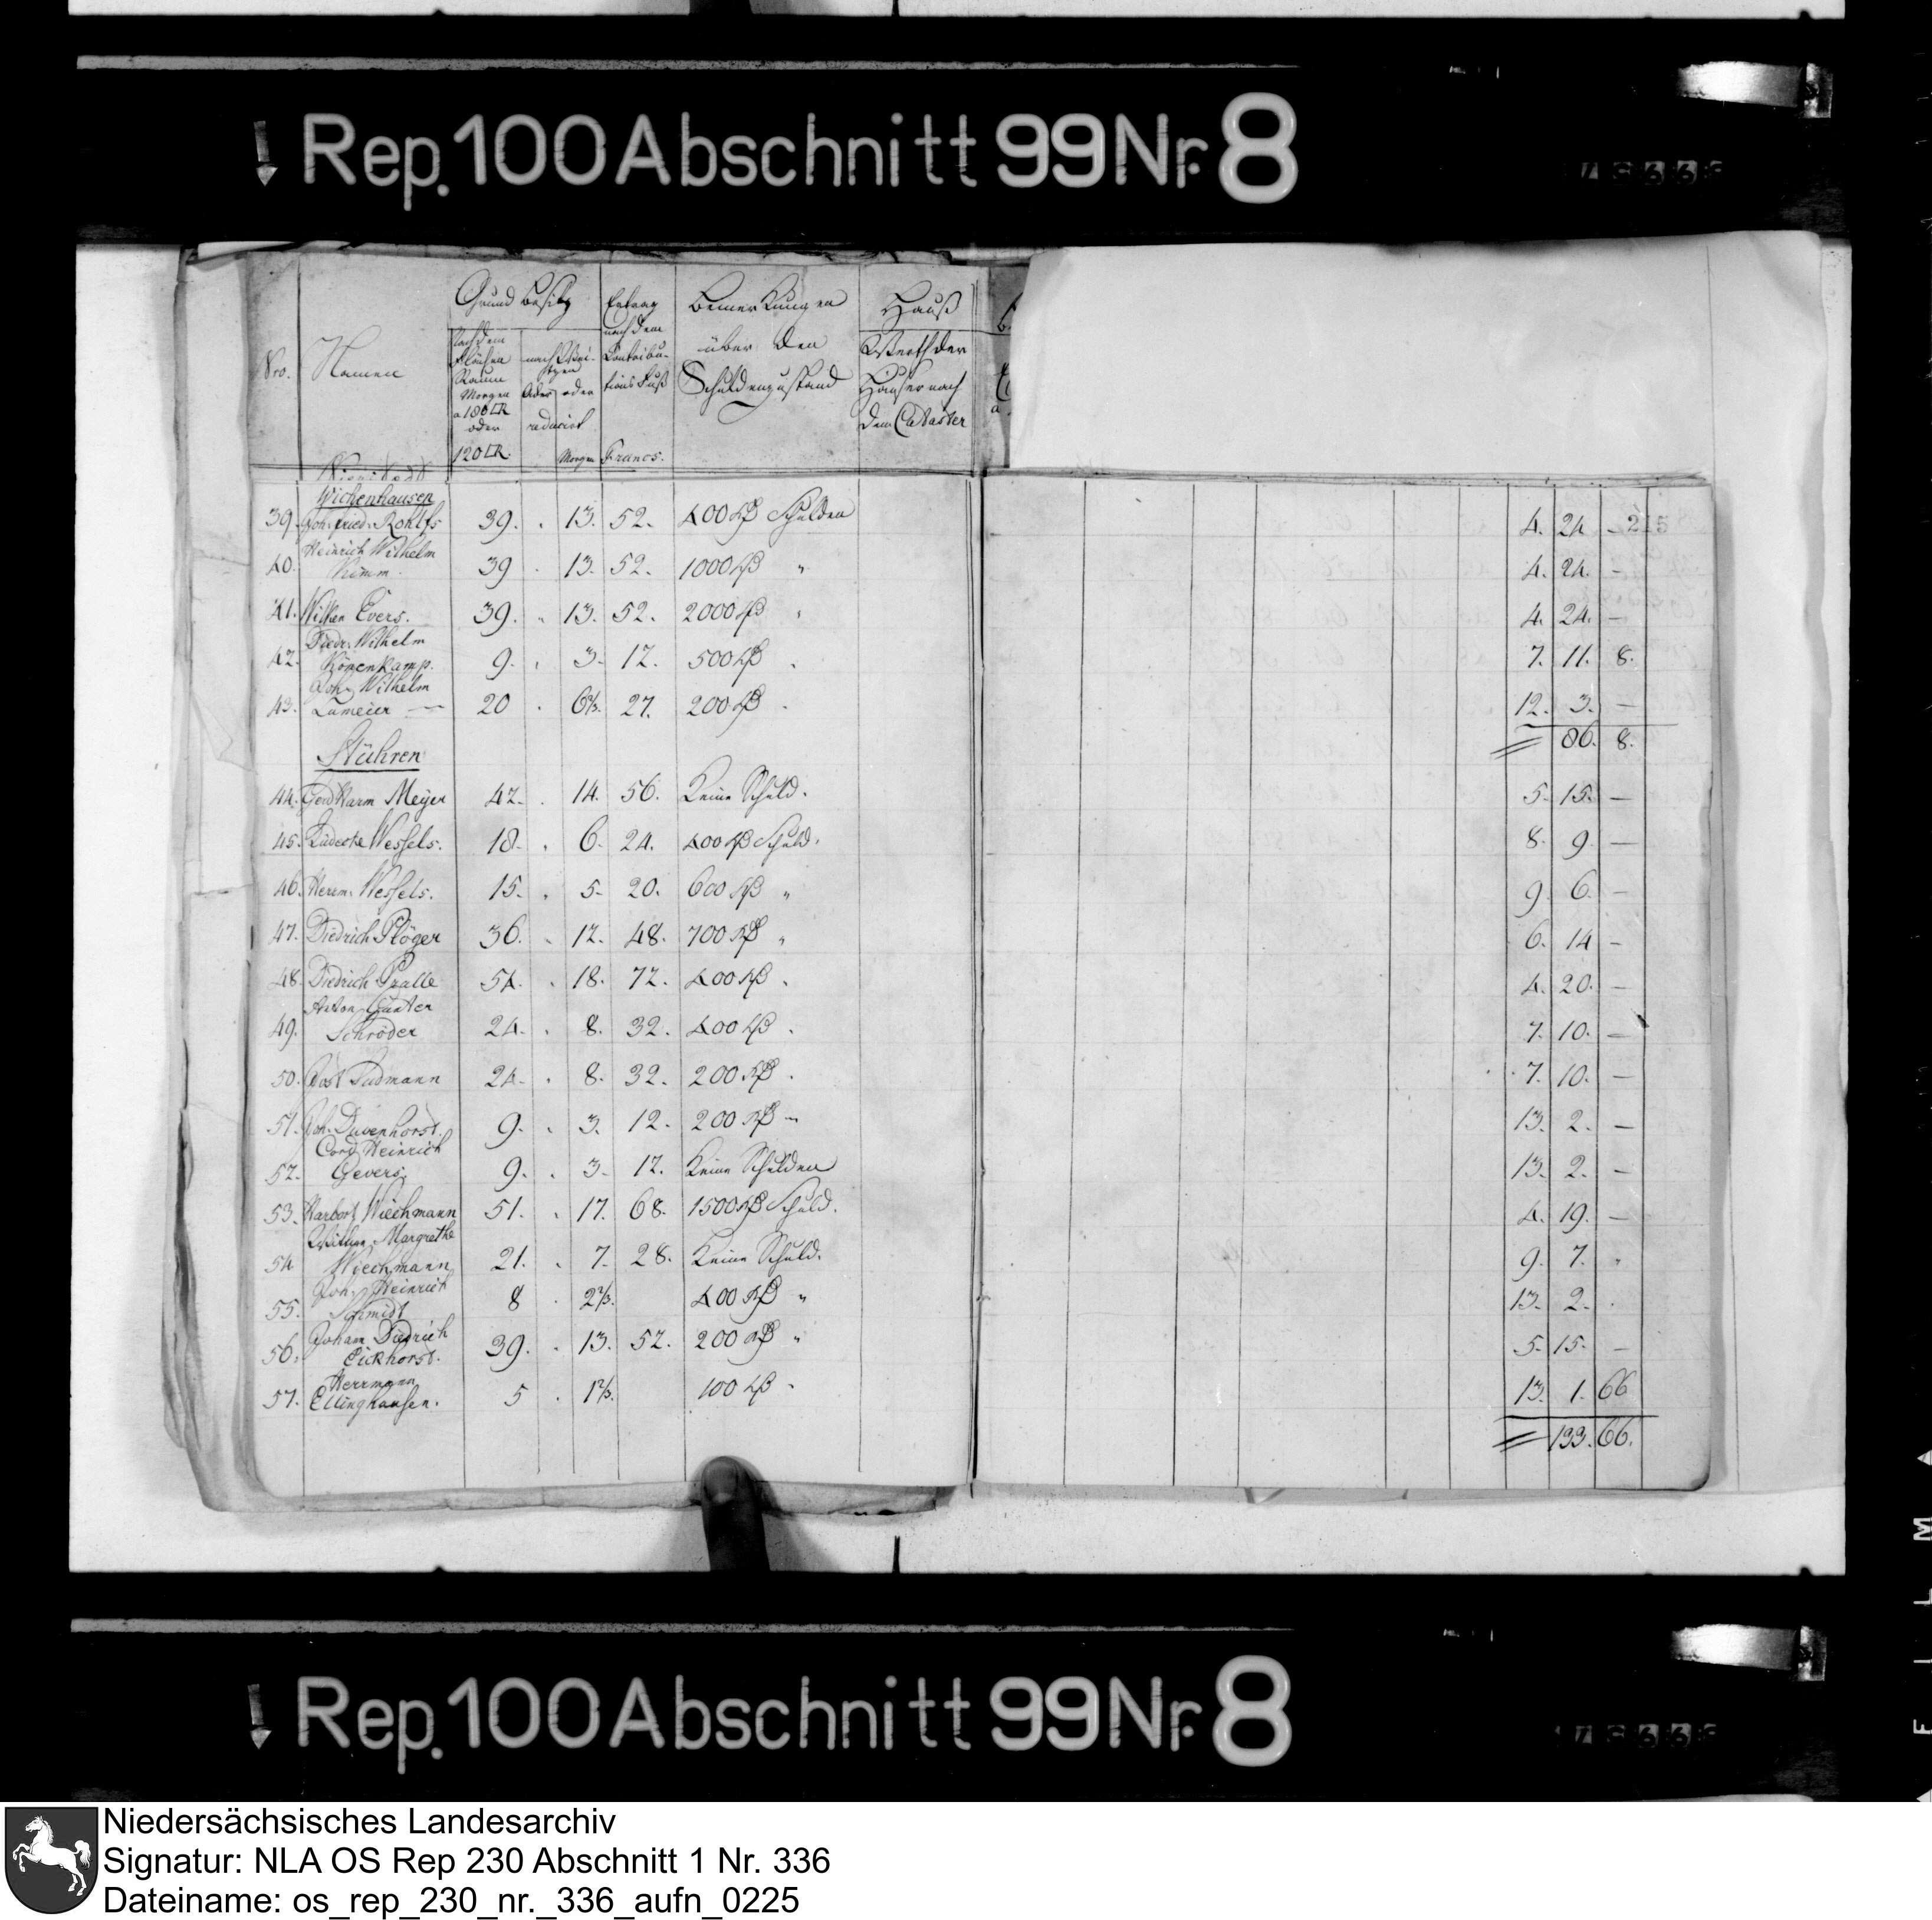 Rep. 100 Abschnitt 99 Nr. 8
Nro.
Namen
Grund besitz
Nach dem
Flächen
Raum
Morgen
a 180 □R
oder
120 □R.
oder
reducirt
Morgen
Ertrag
nach dem
Contribu-
tions Fuß
Francs.
Bemerkungen
über den
Schuldenzustand
Hauß
Werth der
Häuser nach
dem Cataster
Wichenhausen
39. Joh. Fried. Rohlfs 39. 13. 52. 400 Schulden 4. 24 - 215
Heinrich Wilhelm
40. 39 13. 52. 1000 " 4. 24. -
41. Wilken Evers. 39. 13. 52. 2000 " 4. 24. -
Diedr. Wilhelm
42. Könenkamp. 9. 3. 12. 500 7. 11. 8.
Joh. Wilhelm
43. Lameier 20 6 2/3. 27. 200 12. 3. -
86. 8.
Stühren
44. Gerd Harm Meyer 42. 14. 56. Keine Schuld. 5. 15. -
45. Lüdecke Wessels. 18. 6. 24. 400 Schuld. 8. 9. -
46. Herm. Wessels. 15. 5. 20. 600 " 9. 6. -
47. Diedrich Plöger 36. 12. 48. 700 " 6. 14 -
48. Diedrich Pralle 54. 18. 72. 400 4. 20. -
Anton Günter
49. Schröder 24. 8. 32. 400 7. 10. -
50. Tudmann 24. 8. 32. 200 7. 10. -
51. Joh. Duvenhorst. 9. 3. 12. 200 - 13. 2. -
Cord Heinrich
52. Gevers. 9. 3. 12. Keine Schulden 13. 2. -
53. Harbort Wiechmann 51. 17. 68. 1500 Schuld. 4. 19. -
Wittwe Margrethe
54 Wiechmann 21. 7. 28. Keine Schuld. 9. 7.
Joh. Heinrich
55. Schmidt 8 2 2/3. 400 " 13. 2.
Johann Diedrich
56. Eickhorst. 39. 13. 52. 200 " 5. 15. -
Herrmann
57. Ellinghausen. 5 1 2/3. 100 13. 1. 66
133. 66.
Rep. 100 Abschnitt 99 Nr. 8
Niedersächsisches Landesarchiv
Signatur: NLA OS Rep 230 Abschnitt 1 Nr. 336
Dateiname: os_rep_230_nr._336_aufn_0225